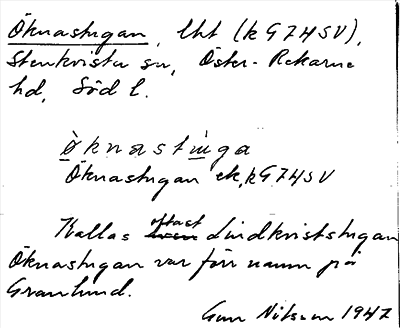 Öknastugan, lht (k G7HSV),
Stenkvista sn, Öster-Rekarne
hd, Söd l.
öknastuga
Öknastugan ek, k G7HSV
Kallas oftast Lindkviststugan
Öknastugan var förr namn på
Granlund.
Gun Nilsson 1947